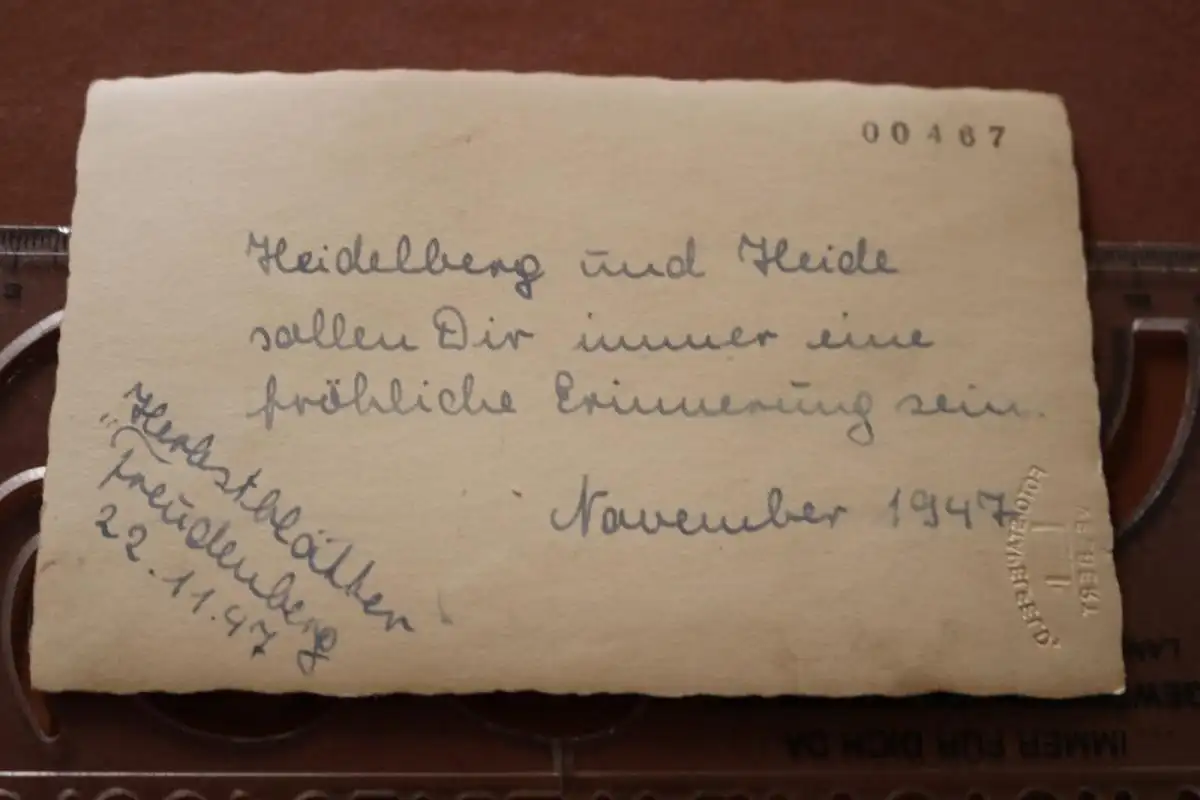 00467
Heidelberg und Heide
sollen Dir immer eine
fröhliche Erinnerung sein.
November 1947
"Herbstblätter
Freudenberg
22.11.47
IMMER FÜR DICH DA